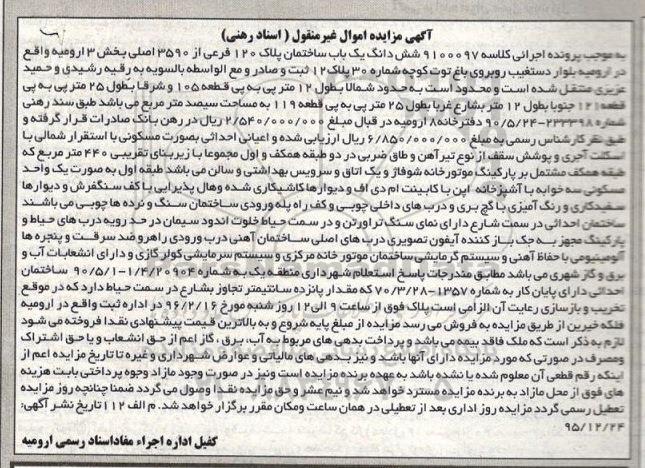 آگهی مزایده اموال غیرمنقول ( اسناد رهنی )
به موجب پرونده اجرائی کلاسه ۹۱۰۰۰۹۷ شش دانگ یک باب ساختمان پلاک ۱۲۰ فرعی از ۳۵۹۰ اصلی بخش ۳ ارومیه واقع
در ارومیه بلوار دستغیب روبروی باغ توت کوچه شماره ۳۰ پلاک ۱۲ ثبت و صادر و مع الواسطه بالسویه به رقیه رشیدی و حمید
عزیزی منتقل شده است و محدود است به حدود شمالا بطول ۱۲ متر پی به پی قطعه ۱۰۵ و شرقا بطول ۲۵ متر پی به پی
قطعه ۱۲۱ جنوبا بطول ۱۲ متر بشارع غربا بطول ۲۵ متر پی به پی قطعه ۱۱۹ به مساحت سیصد متر مربع می باشد طبق سند رهنی
شماره ۲۳۳۳۹۸-۹۰/۵/۲۴ دفترخانه ۸ ارومیه در قبال مبلغ ۲/۵۴۰/۰۰۰/۰۰۰ ریال در رهن بانک صادرات قرار گرفته و
طبق نظر کارشناس رسمی به مبلغ ۶/۸۵۰/۰۰۰/۰۰۰ ریال ارزیابی شده و اعیانی احداثی بصورت مسکونی با استقرار شمالی با
اسکلت آجری و پوشش سقف از نوع تیرآهن و طاق ضربی در دو طبقه همکف و اول مجموعا با زیربنای تقریبی ۴۴۰ متر مربع که
طبقه همکف مشتمل بر پارکینگ موتورخانه شوفاژ و یک اتاق و سرویس بهداشتی و سالن می باشد طبقه اول به صورت یک واحد
مسکونی سه خوابه با آشپزخانه اپن با کابینت ام دی اف و دیوارها کاشیکاری شده وهال پذیرایی با کف سنگفرش و دیوارها
سفیدکاری و رنگ آمیزی با گچ بری و درب های داخلی چوبی و کف راه پله ورودی ساختمان سنگ و نرده ها چوبی می باشند
ساختمان احداثی در سمت شارع دارای نمای سنگ تراورتن و در سمت حیاط خلوت اندود سیمان در حد رویه درب های حیاط و
پارکینگ مجهز به جک باز کننده آیفون تصویری درب های اصلی ساختمان آهنی درب ورودی راهرو ضد سرقت و پنجره ها
آلومینیومی با حفاظ آهنی و سیستم گرمایشی ساختمان موتور خانه مرکزی و سیستم سرمایشی کولر گازی و دارای انشعابات آب و
برق و گاز شهری می باشد مطابق مندرجات پاسخ استعلام شهرداری منطقه یک به شماره ۱/۴/۲۰۹۰۴-۹۰/۵/۱ ساختمان
احداثی دارای پایان کار به شماره ۱۳۵۷-۷۰/۳/۲۸ که مقدار پانزده سانتیمتر تجاوز بشارع در سمت حیاط دارد که در موقع
تخریب و بازسازی رعایت آن الزامی است پلاک فوق از ساعت ۹ الی ۱۲ روز شنبه مورخ ۹۶/۲/۱۶ در اداره ثبت واقع در ارومیه
فلکه خیرین از طریق مزایده به فروش می رسد مزایده از مبلغ پایه شروع و به بالاترین قیمت پیشنهادی نقدا فروخته می شود
لازم به ذکر است که ملک فاقد بیمه می باشد و پرداخت بدهی های مربوط به آب، برق ، گاز اعم از حق انشعاب و یا حق اشتراک
ومصرف در صورتی که مورد مزایده دارای آنها باشد و نیز بدهی های مالیاتی و عوارض شهرداری و غیره تا تاریخ مزایده اعم از
اینکه رقم قطعی آن معلوم شده یا نشده باشد به عهده برنده مزایده است ونیز در صورت وجود مازاد وجوه پرداختی بابت هزینه
های فوق از محل مازاد به برنده مزایده مسترد خواهد شد و نیم عشر و حق مزایده نقدا وصول می گردد ضمنا چنانچه روز مزایده
تعطیل رسمی گردد مزایده روز اداری بعد از تعطیلی در همان ساعت ومکان مقرر برگزار خواهد شد. م الف ۱۱۲ تاریخ نشر آگهی:
۹۵/۱۲/۲۴
کفیل اداره اجراء مفاداسناد رسمی ارومیه